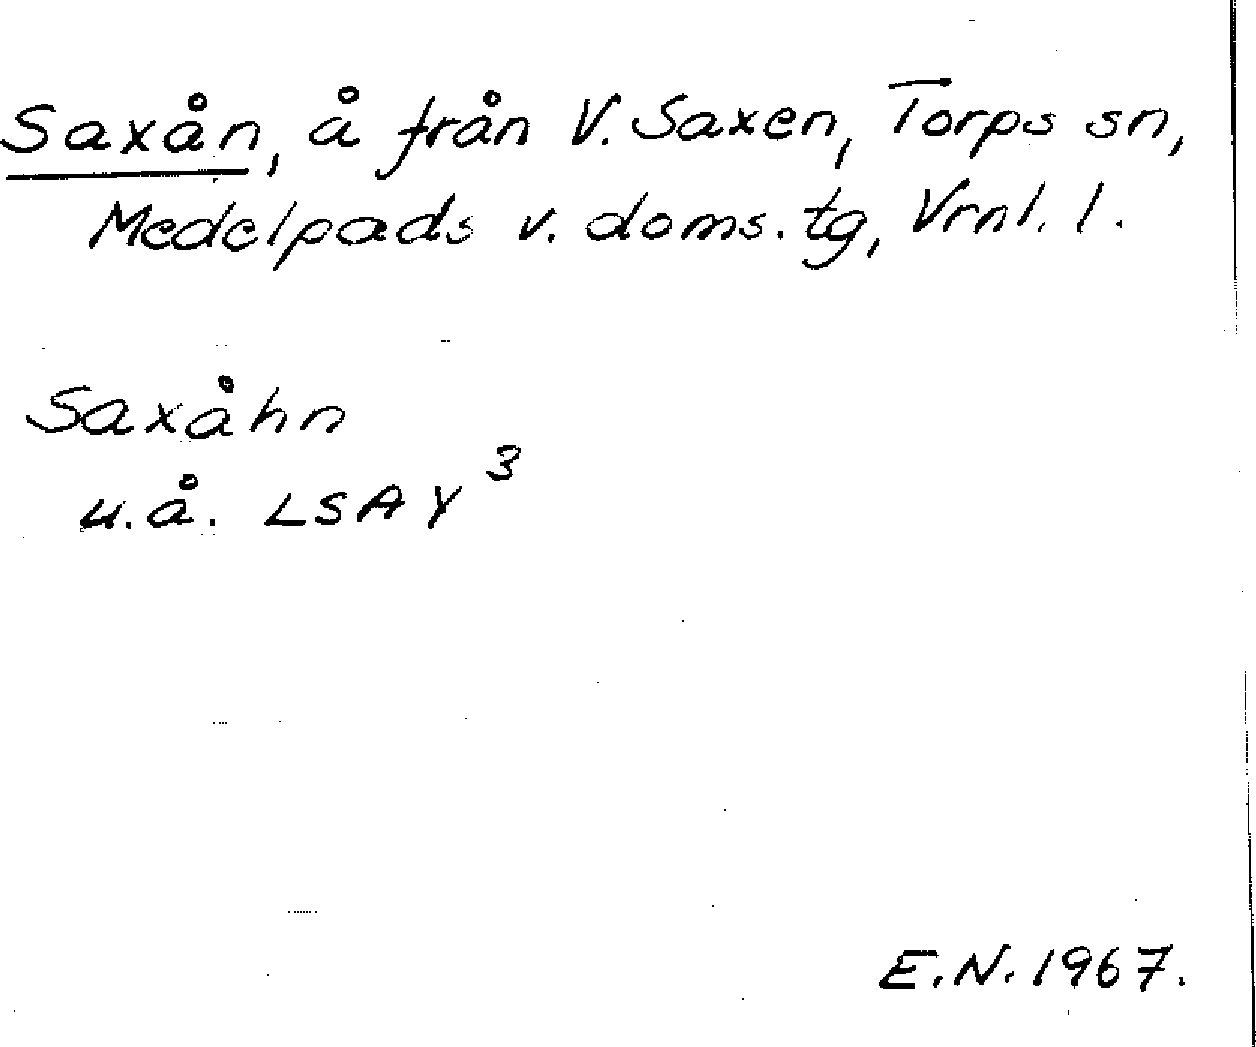 Saxån, å från V. Saxen, Torps sn,
Medelpads v. doms. tg, Vrnl. l.
Saxåhn
u.å. LSA Y³
E.N. 1967.